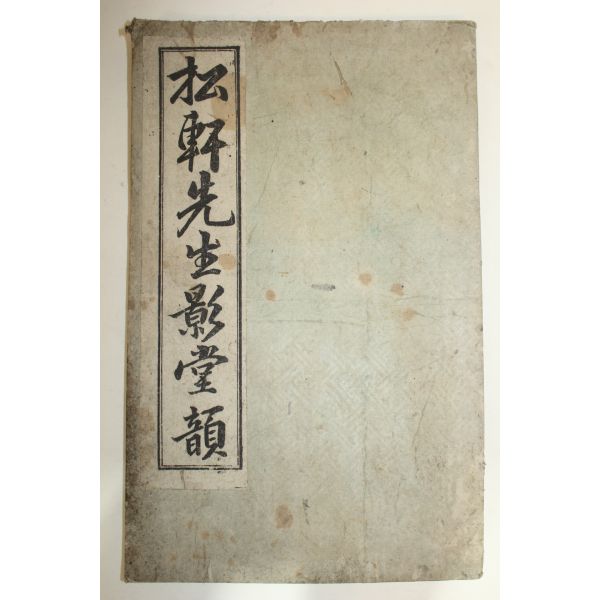 松軒先生影堂韻